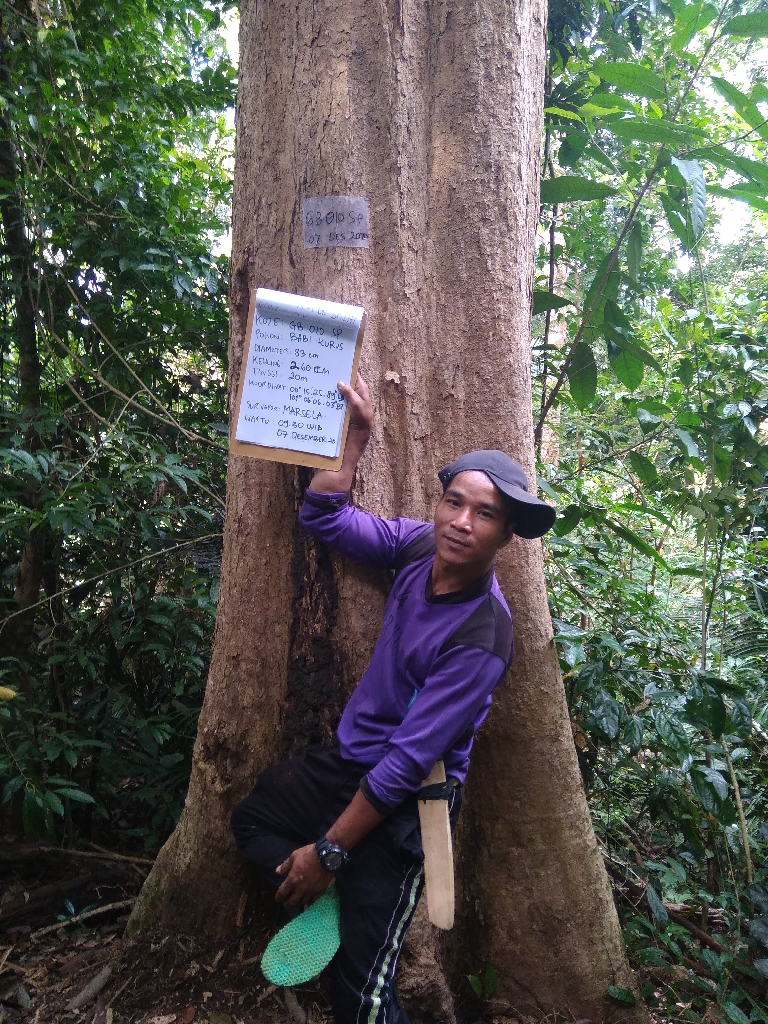 GB 010 SP
07 DES 20
KODE: GB 010 SP
POHON: BABI KURUS
DIAMETER: 83 cm
KELILING: 260 CM
TINGGI: 20m
KOORDINAT:
SURVEYOR: MARSELA
WAKTU: 09.30 WIB
07 DESEMBER 20